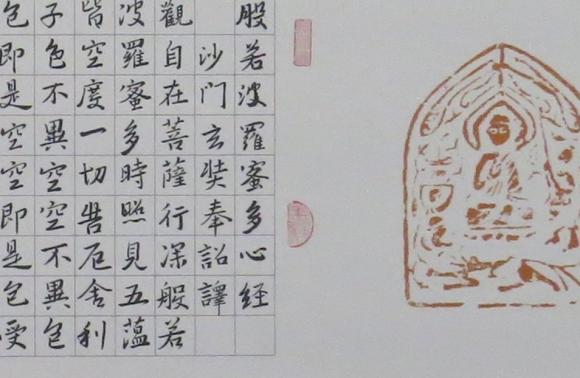 般若波羅蜜多心經
沙門玄奘奉詔譯
觀自在菩薩行深般若
波羅蜜多時照見五蘊
皆空度一切苦厄舍利
子色不異空空不異色
色即是空空即是色受